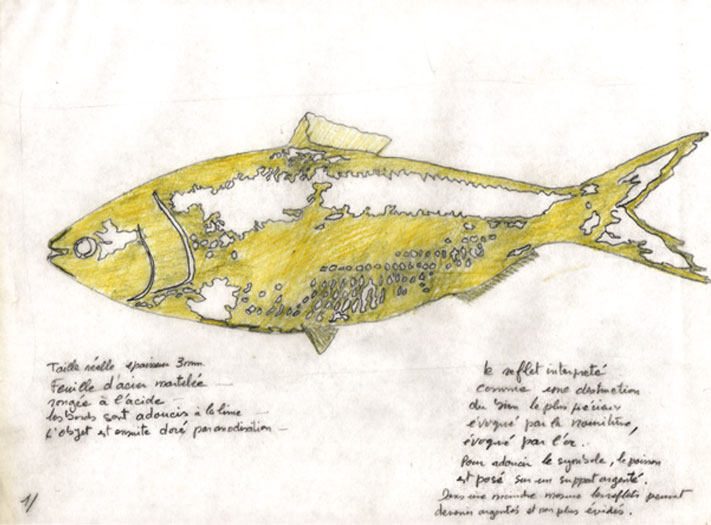 Taille réelle épaisseur 3mm
Feuille d'acier martelée —
rongée à l'acide —
les bords sont adoucis à la lime —
L'objet est ensuite doré par anodisation —
le reflet interpreté
comme une destruction
du bien le plus précieux
évoqué par la nourriture,
évoqué par l'or..
Pour adoucir le symbole, le poisson
est posé sur un support argenté.
Dans une moindre mesure les reflets peuvent
devenir argentés et non plus évidés.
1/